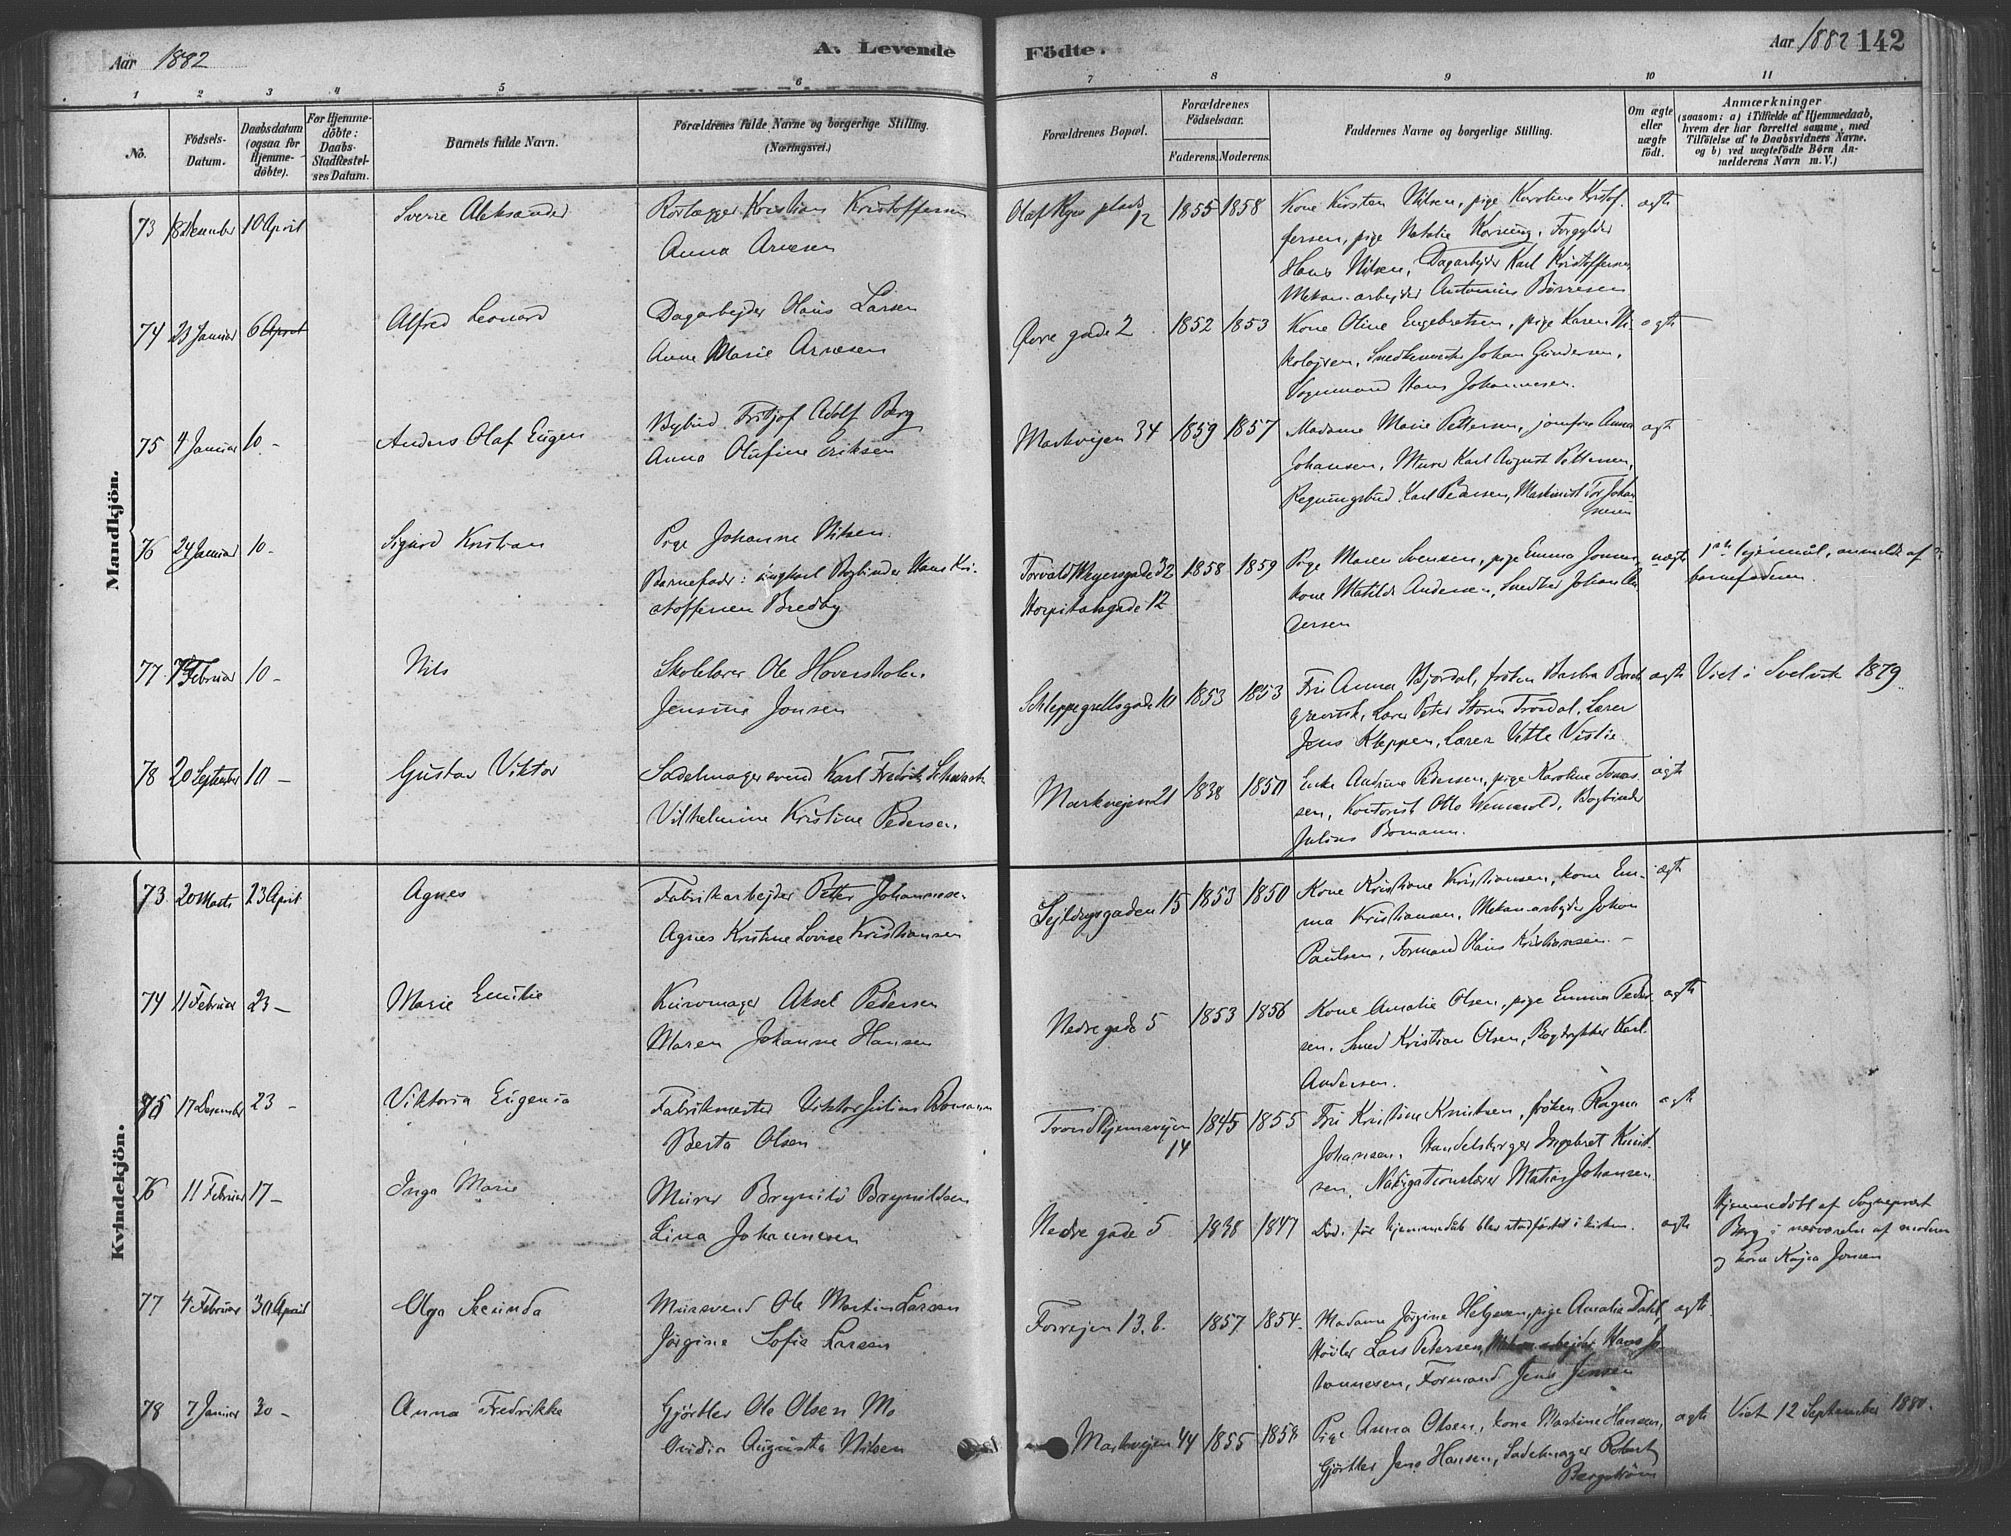 Aar 1882
A. Levende
Födte.
Aar 1882 142
1 2 3 4 5 6 7 8 9 10 11
No.
Födsels-Datum.
Daabsdatum (ogsaa for Hjemmedöbte).
For Hjemmedöbte: Daabs-Stadfæstelses Datum.
Barnets fulde Navn.
Forældrenes fulde Navne og borgerlige Stilling. (Næringsvei.)
Forældrenes Bopæl.
Forældrenes Födselsaar.
Faderens. Moderens.
Faddernes Navne og borgerlige Stilling.
Om ægte eller uægte födt.
Anmærkninger
(saasom: a) i Tilfælde af Hjemmedaab, hvem der har forrettet samme, med Tilföielse af to Daabsvidners Navne. og b) ved uægtefödte Börn Anmelderens Navn m. V.)
Mandkjön.
73 18 Desember 10 April Sverre Aleksander Rörlægger Kristian Kristoffersen
Anna Arnesen
Olaf Ryes plads 12 1855 1858
Kone Kirsten Nilsen, pige Karoline Kristof-
fersen, pige Natalie Korning, Forgylder
Hans Nilsen, Dagarbejder Karl Kristoffersen
Mekan. arbejder Antonius Börresen
ægte
74 23 Januar 6 April Alfred Leonard Dagarbejder Hans Larsen
Anne Marie Arnesen
Övre gade 2 1852 1853
Kone Oline Engebretsen, pige Karen Ni-
kolajsen, Snedkermester Johan Gundersen,
Vognmand Hans Johannesen.
ægte
75 4 Januar 10 - Anders Olaf Eugen Bybud Fritjof Adolf Berg
Anna Olufine Eriksen
Markvejen 34 1859 1857
Madame Marie Pettersen, jomfru Anna
Johansen, Murer Karl August Pettersen,
Regningsbud Karl Pedersen, Maskinist Tor Johan
nesen
ægte
76 24 Januar 10 - Sigurd Kristian Pige Johanne Nilsen.
Barnefader: ungkarl Bogbinder Hans Kri-
stoffersen Bredby
Torvald Meyersgade 32 1858 1859
Hospitalsgade 12
Pige Maren Svensen, pige Emma Jonsen,
kone Matilde Andersen, Snedker Johan An
dersen
uægte
1ste lejermål, anmeldt af
barnefaderen.
77 Februar 10 - Nils Skolelærer Ole Hovensholm
Jensine Jonsen
Schleppegrellsgade 10 1853 1853
Fru Anna Bjordal, fröken Barbra
Lærer Peter Storm Trosdal, Lærer
Jens Kleppen, Lærer Vetle Vislie
ægte
Viet i Svelvik 1879.
78 20 September 10 - Gustav Viktor Sadelmagersvend Karl Fredrik Schwach
Vilhelmine Kristine Pedersen.
Markvejen 21 1838 1850
Enke Andrine Pedersen, pige Karoline Tomas-
sen, Kontorist Otto Bogbinder
Julius Bomann.
ægte
Kvindekjön.
73 20 Marts 23 April Agnes Fabrikarbejder Petter Johannesen
Agnes Kristine Lovise Kristiansen
Sejldugsgaden 15 1853 1850
Kone Kristiane Kristiansen, kone Em-
ma Kristiansen, Mekan. arbejder Johan
Paulsen, Formand Hans Kristiansen. -
ægte
74 11 Februar 23 - Marie Emilie Kurvmager Aksel Pedersen
Maren Johanne Hansen
Nedre gade 5 1853 1856
Kone Amalie Olsen, pige Emma Peder-
sen, Smed Kristian Olsen, Bogtrykker Karl
Andersen.
ægte
75 17 Desember 23 - Viktoria Eugenia Fabrikmester Viktor Julius Bomann
Berta Olsen
Trondhjemsvejen 14 1845 1855
Fru Kristine Knutsen, fröken Ragna
Johansen, Handelsborger Ingebret Knut-
sen, Navigationslærer Matias Johansen
ægte
76 11 Februar 17 - Inga Marie Murer Brynild Brynildsen
Lina Johannesen
Nedre gade 5 1838 1847
Död. för hjemmedåb blev stadfæstet i kirken.
ægte
Hjemmedöbt af Sogneprest
Berg i nærværelse af moderen
og kone Kajsa Jonsen
77 4 Februar 30 April Olga Sekunda Mursvend Ole Martin Larsen
Jörgine Sofie Larsen
Forvejen 13. b. 1857 1854.
Madame Jörgine Helgesen, pige Amalie Dahl,
Hövler Lars Petersen, Mekan. arbejder Hans Jo-
hannesen, Formand Jens Jensen
ægte.
78 7 Januar 30 - Anna Fredrikke Gjörtler Ole Olsen Mo
Ovidia Augusta Nilsen
Markvejen 44 1855 1858
Pige Anna Olsen, kone Martine Hansen,
Gjörtler Jens Hansen, Sadelmager Robert
Bergström
ægte
Viet 12 September 1880.